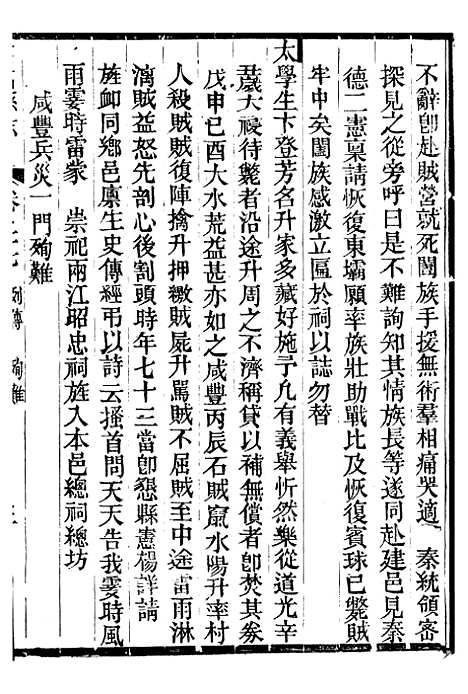 不辭卽赴賊營就死闔族手援無術羣相痛哭適　秦統領密
探見之從旁呼曰是不難詢知其情族長等遂同赴建邑見秦
德二憲稟請恢復東壩願率族壯助戰比及恢復賓球已斃賊
牢中矣闔族感激立匾於祠以誌勿替
太學生卞登芳名升家多藏好施予凢有義舉忻然樂從道光辛
歲大祲待斃者沿途升周之不濟稱貸以補無償者卽焚其券
戊申己酉大水荒益甚亦如之咸豐丙辰石賊竄水陽升率村
人殺賊賊復陣擒升押繳賊屍升罵賊不屈賊至中途雷雨淋
漓賊益怒先剖心後割頭時年七十三當卽懇縣憲楊詳請
旌卹同鄉邑廩生史傳經弔以詩云搔首問天天告我霎時風
雨霎時雷蒙　崇祀兩江昭忠祠旌入本邑總祠總坊
咸豐兵災一門殉難
列傳　殉難